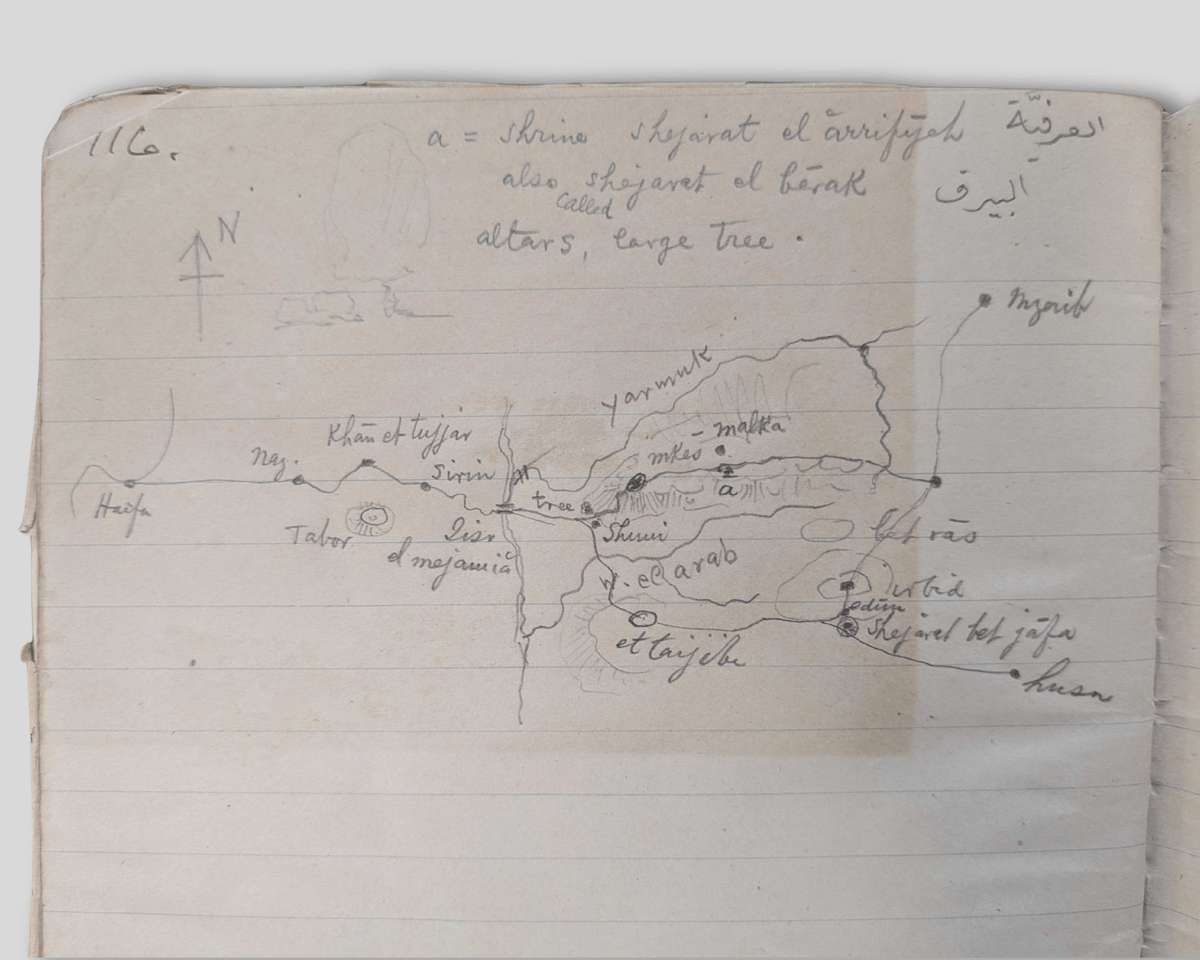 116.
a = shrine shejárat el ʿārrifīyeh العرفيّة
also called shejaret el bērak البيرق
altars, large tree.
N
Mzerib
yarmuk
malka
Khān et tujjar
mkēs
Naz.
sirin
a
Haifa
tree
Tabor
Jisr el mejamiă
Shuni
bet rās
w. el arab
irbid
edūn
Shejăret bet jāfa
et taijibe
husn